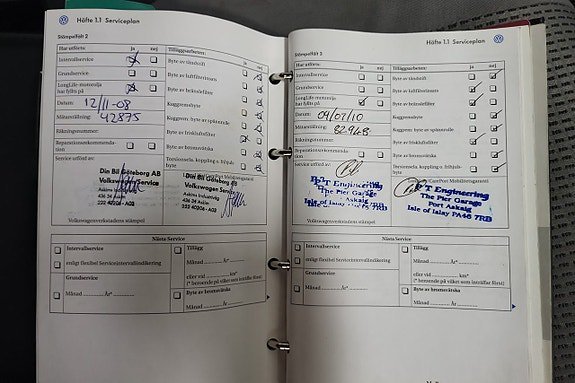 Häfte 1.1 Serviceplan
Stämpelfält 2
Har utförts: ja nej
Intervallservice
Grundservice
LongLife-motorolja
har fyllts på
Datum: 12/11-08
Mätarställning: 42875
Räkningsnummer:
Reparationsrekommenda-
tion
Service utförd av:
Tilläggsarbeten: ja nej
Byte av tändstift
Byte av luftfilterinsats
Byte av bränslefilter
Kuggremsbyte
Kuggrem: byte av spännrulle
Byte av friskluftsfilter
Din Bil Göteborg AB
Volkswagen Service
Askims Industriväg
436 34 Askim
Din Bil Göteborg AB
Volkswagen Service
436 34 Askim
Volkswagenverkstadens stämpel
Nästa Service
Intervallservice
enligt flexibel Serviceintervallindikering
Grundservice
Månad År*
Tillägg
Månad År*
eller vid km*
(* beroende på vilket som inträffar först)
Byte av bromsvätska
Månad År
Häfte 1.1 Serviceplan
Stämpelfält 3
Har utförts: ja nej
Intervallservice
Grundservice
LongLife-motorolja
har fyllts på
Datum: 09/07/10
Mätarställning: 82948
Räkningsnummer:
Reparationsrekommenda-
tion
Service utförd av:
Tilläggsarbeten: ja nej
Byte av tändstift
Byte av luftfilterinsats
Byte av bränslefilter
Kuggremsbyte
Kuggrem: byte av spännrulle
Byte av friskluftsfilter
Torsensels. koppling o. frihjuls-
byte
The Pier Garage
Port Askaig
Isle of Islay PA46 7RB
The Pier Garage
Port Askaig
Isle of Islay PA46 7RB
Volkswagenverkstadens stämpel
Nästa Service
Intervallservice
enligt flexibel Serviceintervallindikering
Grundservice
Månad År*
Tillägg
Månad År*
eller vid km*
(* beroende på vilket som inträffar först)
Byte av bromsvätska
Månad År